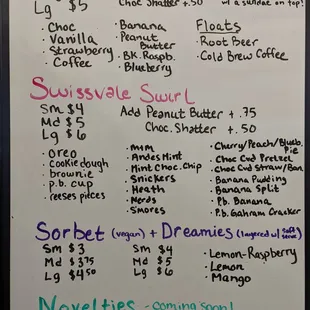 Lg $5
Choc Shatter + .50
w/ a sundae on top!
· Choc
· Vanilla
· Strawberry
· Coffee
· Banana
· Peanut Butter
· BK. Raspb.
· Blueberry
Floats
· Root Beer
· Cold Brew Coffee
Swissvale Swirl
Sm $4
Md $5
Lg $6
Add Peanut Butter + .75
Choc. Shatter + .50
· Oreo
· Cookie dough
· brownie
· p.b. cup
· reeses pieces
· mm
· Andes Mint
· Mint Choc. Chip
· Snickers
· Heath
· Nerds
· Smores
· Cherry/Peach/Blueb. Pie
· Choc Cvd Pretzel
· Choc Cvd Straw/Ban
· Banana Pudding
· Banana Split
· P.b. Banana
· P.b. Gahram Cracker
Sorbet (vegan) + Dreamies (layered w/ soft serve)
Sm $3
Md $3.75
Lg $4.50
Sm $4
Md $5
Lg $6
· Lemon-Raspberry
· Lemon
· Mango
Novelties - coming soon!